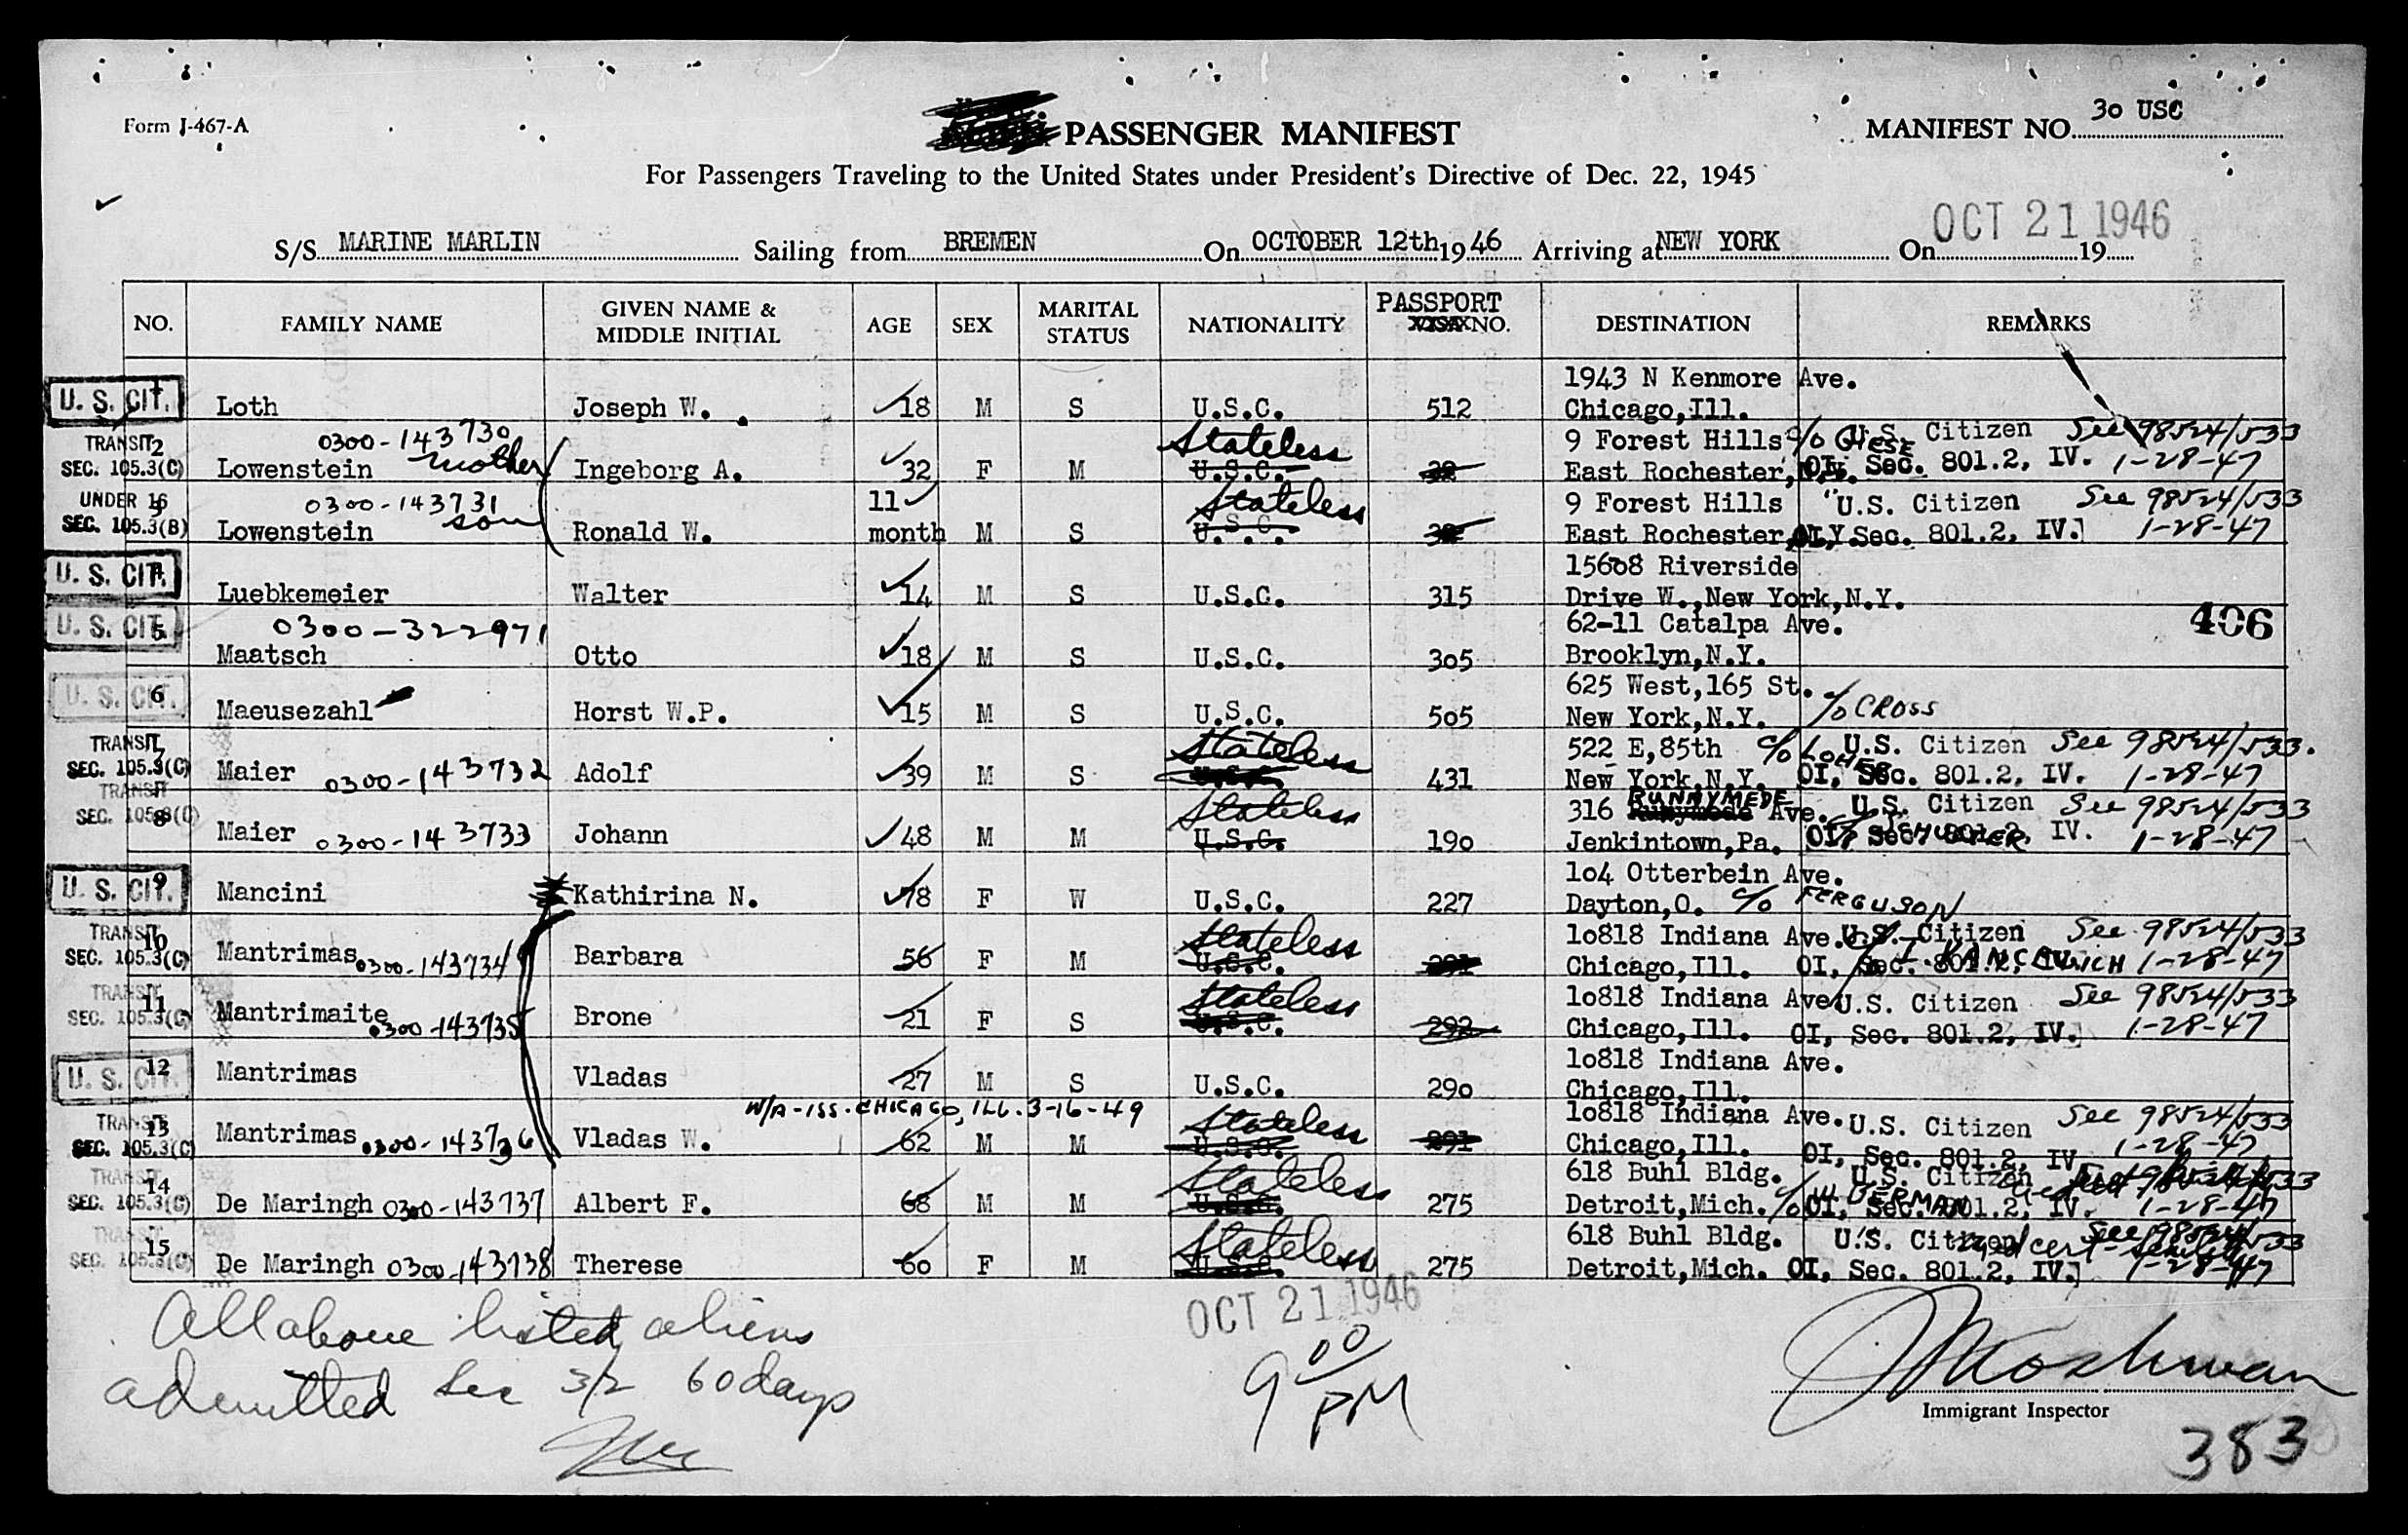 Form I-467-A
PASSENGER MANIFEST
MANIFEST NO. 30 USC
For Passengers Traveling to the United States under President's Directive of Dec. 22, 1945
S/S MARINE MARLIN Sailing from BREMEN On OCTOBER 12th 1946 Arriving at NEW YORK On OCT 21 1946 19
NO. FAMILY NAME GIVEN NAME & MIDDLE INITIAL AGE SEX MARITAL STATUS NATIONALITY PASSPORT NO. DESTINATION REMARKS
1943 N Kenmore Ave.
U. S. CIT. 1 Loth Joseph W. 18 M S U.S.C. 512 Chicago,Ill.
TRANSIT 2 0300-143730 Stateless 9 Forest Hills c/o GIESE U.S. Citizen See 98524/533
SEC. 105.3(C) Lowenstein mother Ingeborg A. 32 F M U.S.C. 32 East Rochester, N.Y. OI, Sec. 801.2, IV. 1-28-47
UNDER 16 3 0300-143731 11 Stateless 9 Forest Hills " U.S. Citizen See 98524/533
SEC. 105.3(B) Lowenstein son Ronald W. month M S U.S.C. 32 East Rochester, N.Y. OI, Sec. 801.2, IV. 1-28-47
15608 Riverside
U. S. CIT. 4 Luebkemeier Walter 14 M S U.S.C. 315 Drive W.,New York,N.Y.
U. S. CIT. 5 0300-322971 62-11 Catalpa Ave. 406
Maatsch Otto 18 M S U.S.C. 305 Brooklyn,N.Y.
625 West,165 St.
U. S. CIT. 6 Maeusezahl Horst W.P. 15 M S U.S.C. 505 New York,N.Y. c/o CROSS
TRANSIT 7 Stateless 522 E,85th c/o LOHER U.S. Citizen See 98524/533.
SEC. 105.3(C) Maier 0300-143732 Adolf 39 M S U.S.C. 431 New York,N.Y. OI, Sec. 801.2, IV. 1-28-47
TRANSIT 8 Stateless 316 RUNNYMEDE Ave. U.S. Citizen See 98524/533
SEC. 105.3(C) Maier 0300-143733 Johann 48 M M U.S.C. 190 Jenkintown,Pa. OI, Sec. 801.2, IV. 1-28-47
1o4 Otterbein Ave.
U. S. CIT. 9 Mancini Kathirina N. 78 F W U.S.C. 227 Dayton,O. c/o FERGUSON
TRANSIT 10 Stateless 1o818 Indiana Ave. U.S. Citizen See 98524/533
SEC. 105.3(C) Mantrimas 0300-143734 Barbara 56 F M U.S.C. 291 Chicago,Ill. OI, Sec. 801.2, IV. 1-28-47
TRANSIT 11 Stateless 1o818 Indiana Ave. U.S. Citizen See 98524/533
SEC. 105.3(C) Mantrimaite 0300-143735 Brone 21 F S U.S.C. 292 Chicago,Ill. OI, Sec. 801.2, IV. 1-28-47
1o818 Indiana Ave.
U. S. CIT. 12 Mantrimas Vladas 27 M S U.S.C. 290 Chicago,Ill.
W/A-ISS. CHICAGO, ILL. 3-16-49
TRANSIT 13 Stateless 1o818 Indiana Ave. U.S. Citizen See 98524/533
SEC. 105.3(C) Mantrimas 0300-143736 Vladas W. 62 M M U.S.C. 291 Chicago,Ill. OI, Sec. 801.2, IV 1-28-47
TRANSIT 14 Stateless 618 Buhl Bldg. U.S. Citizen See 98524/533
SEC. 105.3(C) De Maringh 0300-143737 Albert F. 68 M M U.S.C. 275 Detroit,Mich. c/o OI, Sec. 801.2, IV. 1-28-47
TRANSIT 15 Stateless 618 Buhl Bldg. U.S. Citizen See 98524/533
SEC. 105.3(C) De Maringh 0300-143738 Therese 60 F M U.S.C. 275 Detroit,Mich. OI, Sec. 801.2, IV. Med cert- 1-28-47
All above listed aliens OCT 21 1946
admitted Sec 3/2 60 days 9 00 PM
Immigrant Inspector
383